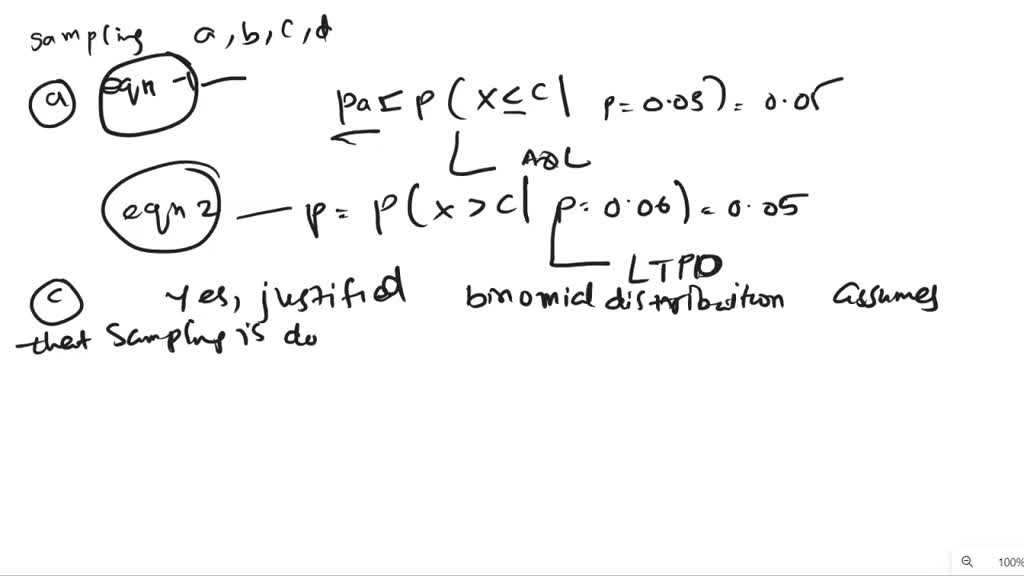 sampling a, b, c, d
a eqn -1 — pa = p ( x ≤ c | p = 0.03 ) = 0.05
AQL
eqn 2 — p = p ( x > c | p = 0.06 ) = 0.05
LTPD
c Yes, justified binomial distribution assumes
that sampling is do
100%